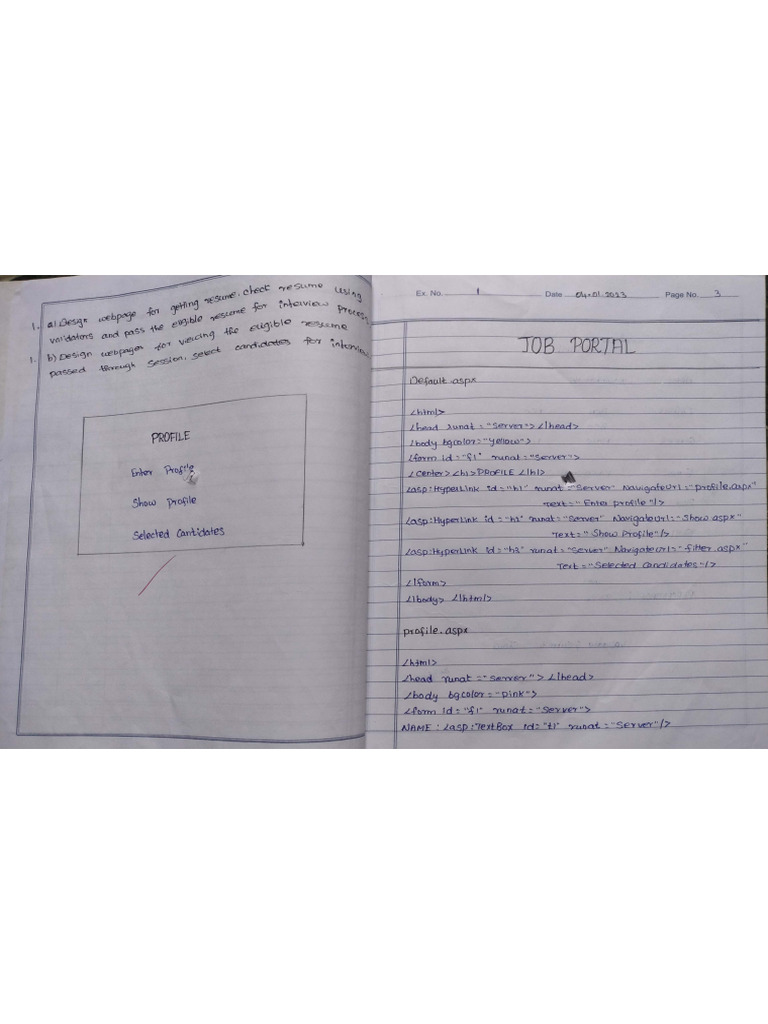 1. a) Design webpage for getting resume, check resume using
validators and pass the eligible resume for interview process
1. b) Design webpages for viewing the eligible resume
passed through session, select candidates for interview
PROFILE
Enter Profile
Show Profile
Selected Cantidates
Ex. No. 1 Date 04.01.2023 Page No. 3
JOB PORTAL
Default.aspx
<html>
<head runat="server"></head>
<body bgcolor="yellow">
<form id="f1" runat="server">
<center><h1>PROFILE</h1>
<asp:HyperLink id="h1" runat="server" NavigateUrl="profile.aspx"
Text="Enter profile"/>
<asp:HyperLink id="h1" runat="server" NavigateUrl="Show aspx"
Text="Show Profile"/>
<asp:HyperLink id="h3" runat="server" NavigateUrl="fitter.aspx"
Text="Selected Candidates"/>
</form>
</body></html>
profile.aspx
<html>
<head runat="server"></head>
<body bgcolor="pink">
<form id="f1" runat="server">
NAME: <asp:TextBox id="t1" runat="server"/>